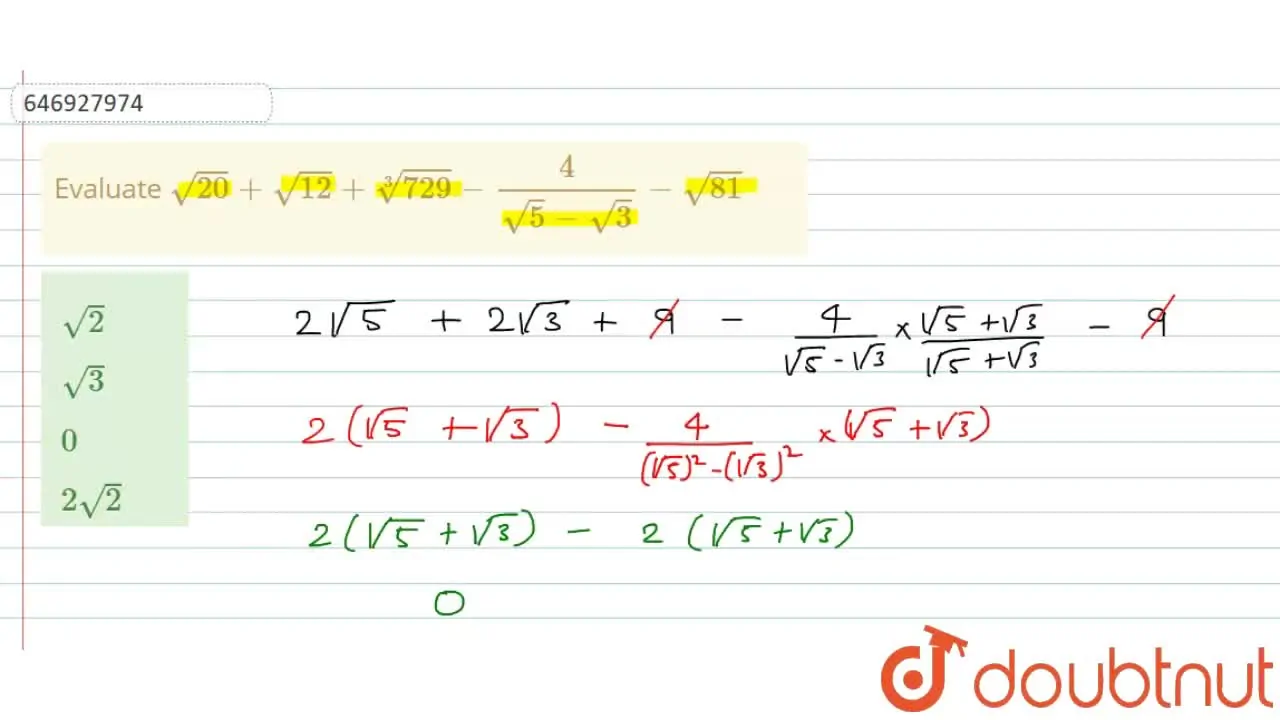 646927974
Evaluate √20 + √12 + ∛729 − 4/(√5 − √3) − √81
√2
√3
0
2√2
2√5 + 2√3 + 9 − 4/(√5 − √3) × (√5 + √3)/(√5 + √3) − 9
2(√5 + √3) − 4/((√5)² − (√3)²) × (√5 + √3)
2(√5 + √3) − 2(√5 + √3)
0
doubtnut